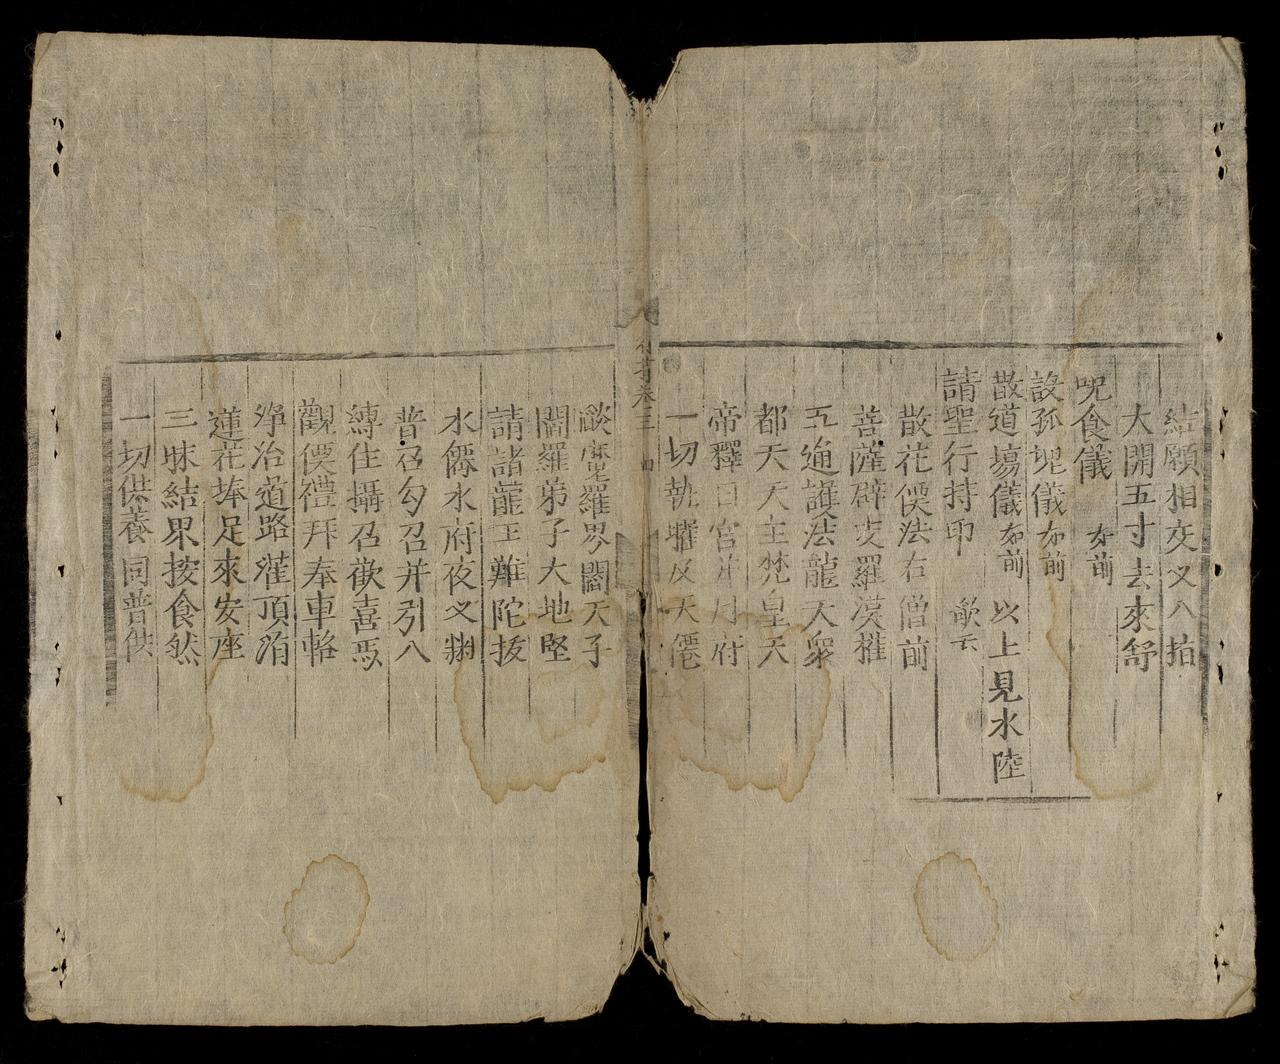 結願相交叉八拍
大開五寸去來舒
呪食儀 如前
設孤䰟儀 如前
散道場儀 如前 以上見水陸
請聖行持印 歌云
散花偠法右僧前
菩薩辟支羅漢推
五通護法龍天衆
都天天主梵皇天
帝釋日宮并月府
一切執曜及天僊
卷三
燄摩羅界閻天子
閻羅弟子大地堅
請諸龍王難陀拔
水儒水府夜叉
普召勾召并引八
縛住攝召歡喜焉
觀偠禮拜奉車輅
净治道路灌頂
蓮花捧足來安座
三昧結界按食然
一切供養同普供